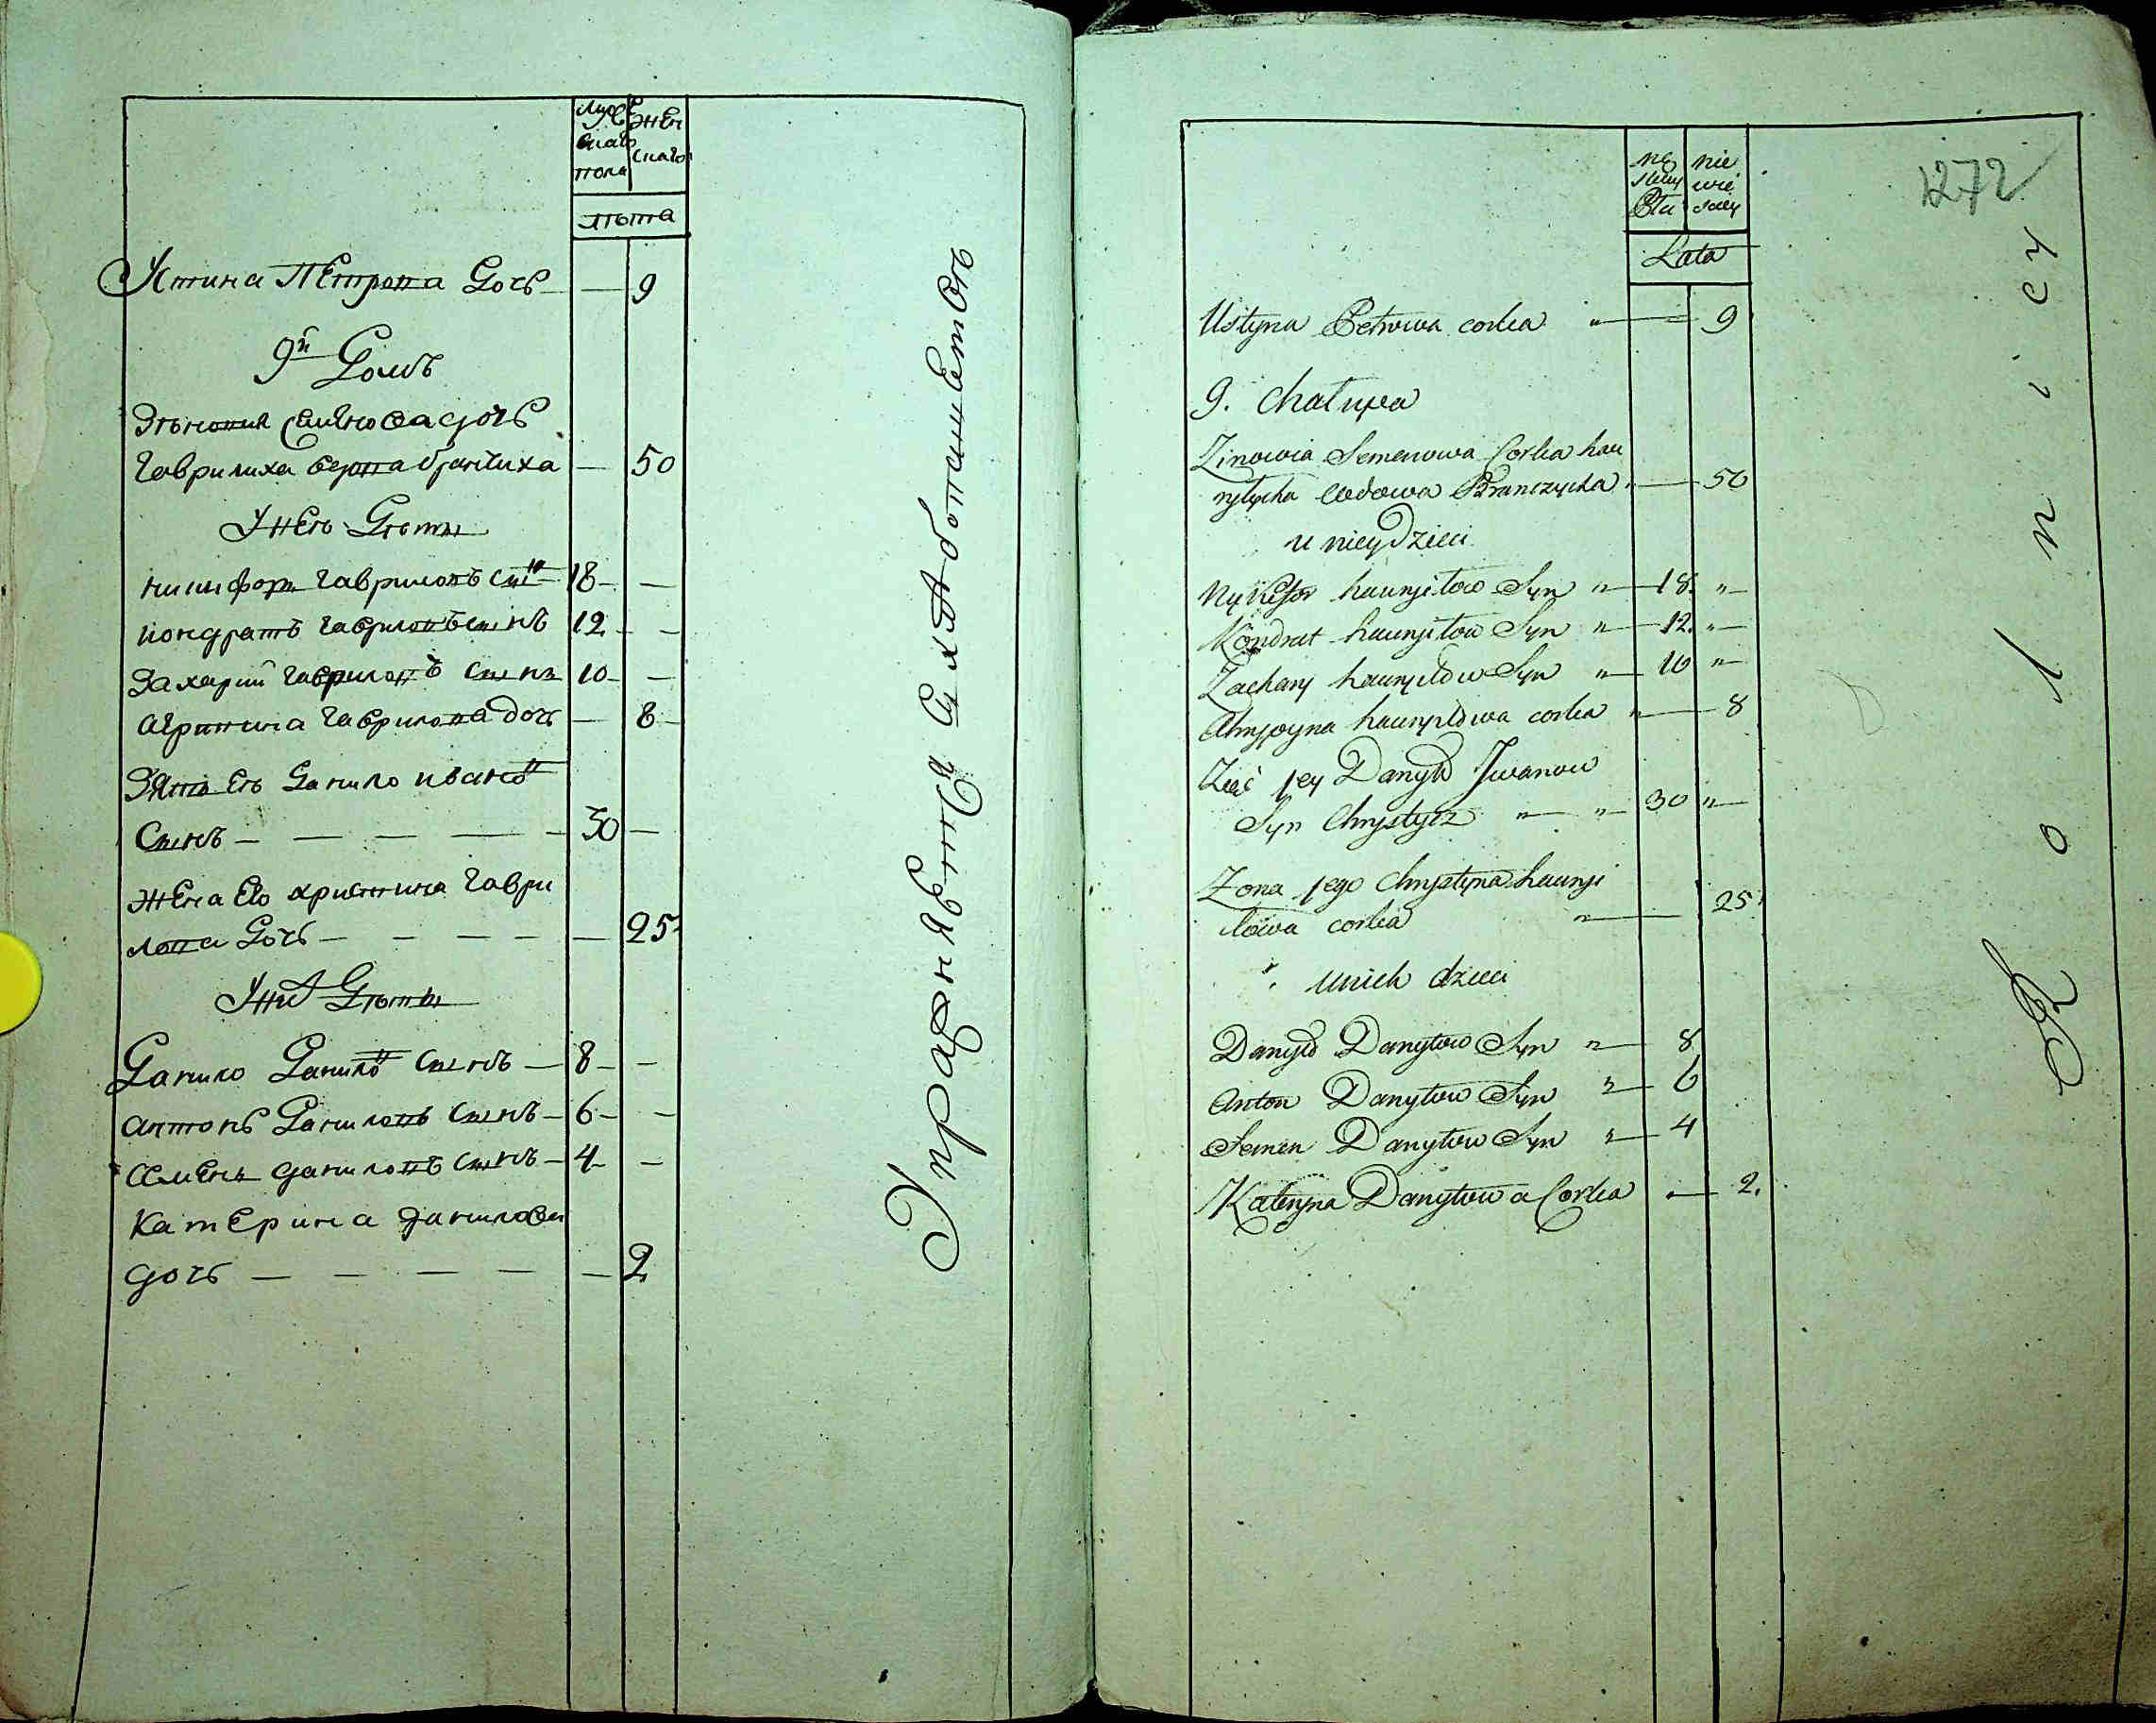 муже
скаго
пола
женс
скаго
лѣта
Устина Петрова дочь — 9
9й Домъ
Зѣновия Семенова дочь
Гаврилиха вдова бранчиха — 50
У нея Дѣти
Никифоръ Гавриловъ сынъ 18 —
Кондратъ Гавриловъ сынъ 12 —
Захарий Гавриловъ сынъ 10 —
Агрипина Гаврилова дочь — 8
Зять ея Данило Иванов
Сынъ — — — — — 30 —
Жена его христина Гаври
лова Дочь — — — — — 25
У них Дѣти
Данило Данилов сынъ — 8 —
Антонъ Даниловъ сынъ — 6 —
Семенъ Даниловъ сынъ — 4 —
Катерина Данилова
дочь — — — — — 2
Упражняется в хлебопашестве
1272
mę
skey
Płci
nie
wie
sciey
Lata
Ustyna Petrowa corka " — 9
9. Chałupa
Zinowia Semenowa Corka haw
ryłycha wdowa Branczycha " — 50
u niey Dzieci
Nykefor hawryłow Syn " — 18 " —
Kondrat hawryłow Syn " — 12 " —
Zachary hawryłow Syn " — 10 " —
Ahrypyna hawryłowa corka " — 8
Zięć jey Danyło Jwanow
Syn Chrystycz " — " — 30 " —
Zona jego Chrystyna hawry
łowa corka " — 25
u nich dzieci
Danyło Danyłow Syn " — 8
Anton Danyłow Syn " — 6
Semen Danyłow Syn " — 4
Kateryna Danyłowa Corka " — 2.
Rolnicy